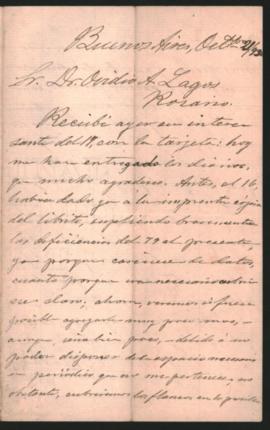 Buenos Aires, Octbre 21/92
Sr. Dr. Ovidio A. Lagos
Rosario.
Recibí ayer su intere
sante del 18, con la tarjeta: hoy
me han entregado los diarios,
que mucho agradezco. Antes, el 16,
había dado ya a la imprenta copia
del librito, supliendo brevemente
las deficiencias del 79 al presente,
ya porque careciese de datos,
cuanto porque era necesario
ahora, veremos si fuese
posible agregarle muy poco mas,
aunque sea bien poco, debido á no
poder disponer del espacio necesario
en periódico que no me pertenece; no
obstante, cubriremos los flancos en lo posible